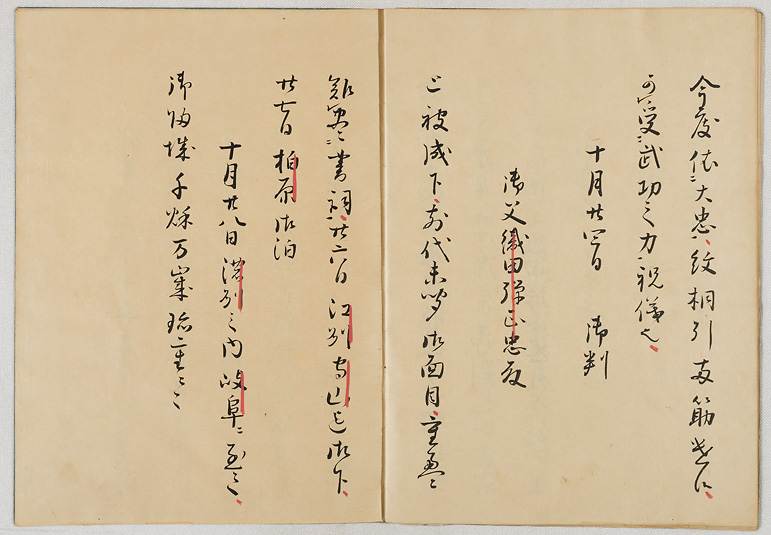 今度依大忠紋桐引両筋遣候
可受武功之力祝儀也
十月廿四日　御判
御父織田弾正忠殿
と被成下前代未聞御面目重畳
難尽書詞廿六日江州守山迄御下
廿七日柏原御泊
十月廿八日濃州之内岐阜ニ至て
御帰城千秋万歳珍重々々